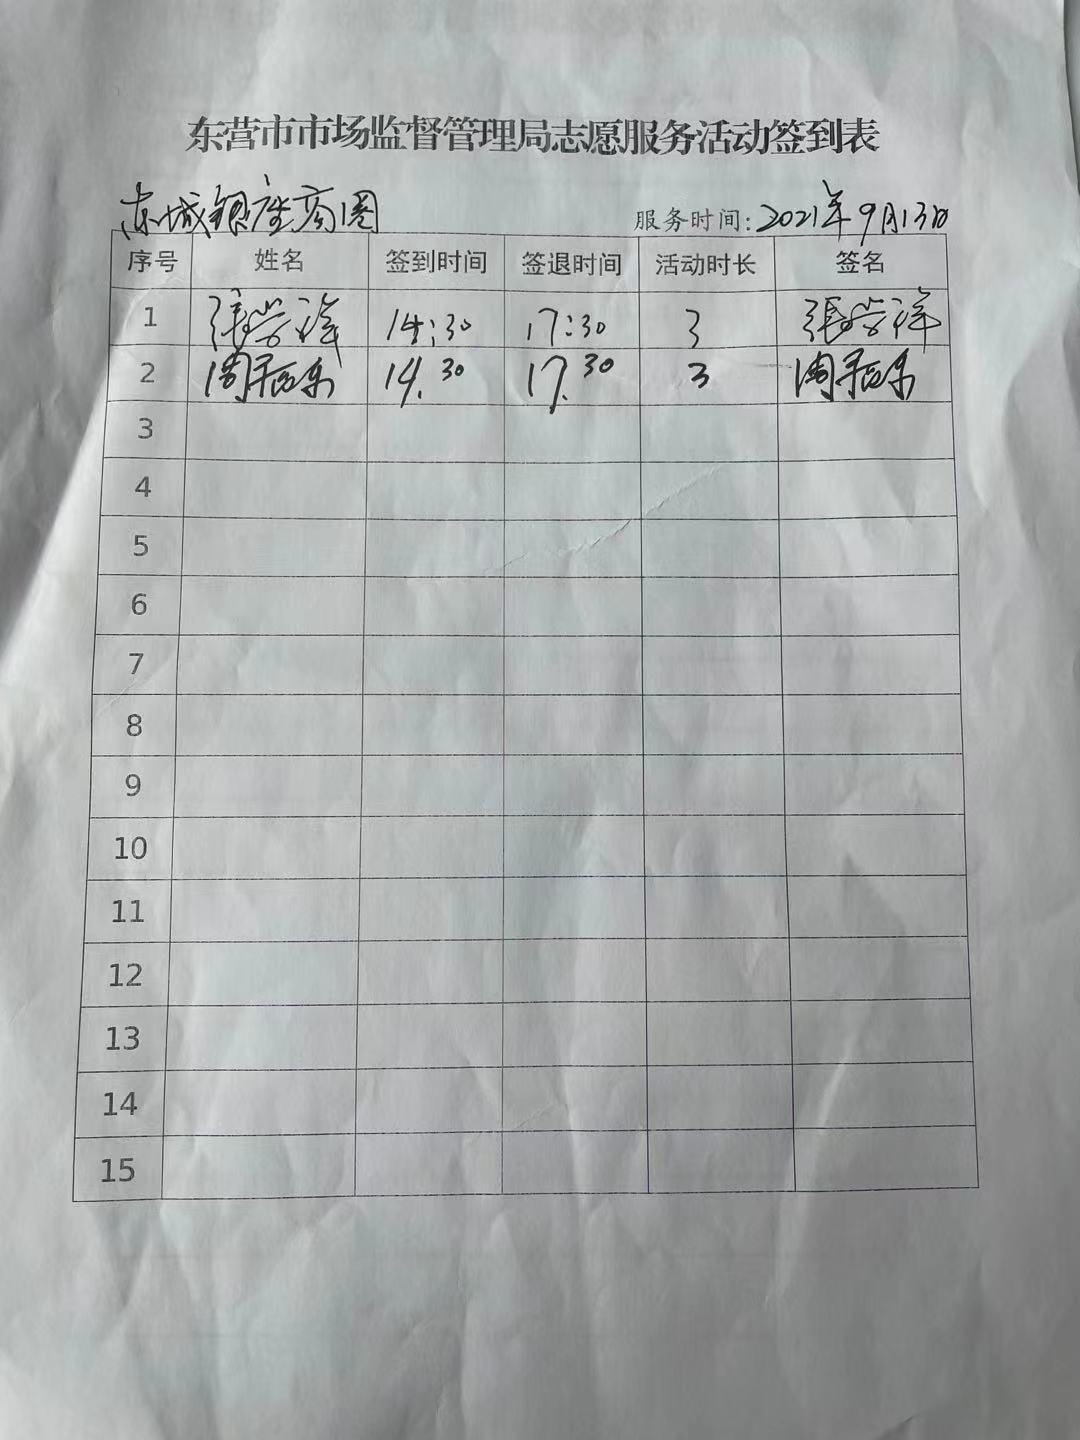 东营市市场监督管理局志愿服务活动签到表
东城银座商圈 服务时间:2021年9月13日
序号 姓名 签到时间 签退时间 活动时长 签名
1 张学祥 14:30 17:30 3 张学祥
2 周 14.30 17.30 3 周
3
4
5
6
7
8
9
10
11
12
13
14
15